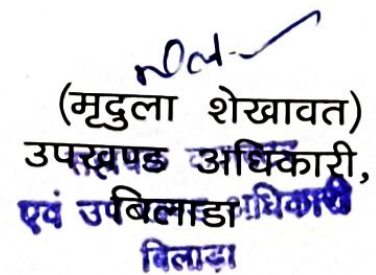 (मृदुला शेखावत)
उपखण्ड अधिकारी,
बिलाडा
एवं उप अधिकारी
बिलाड़ा